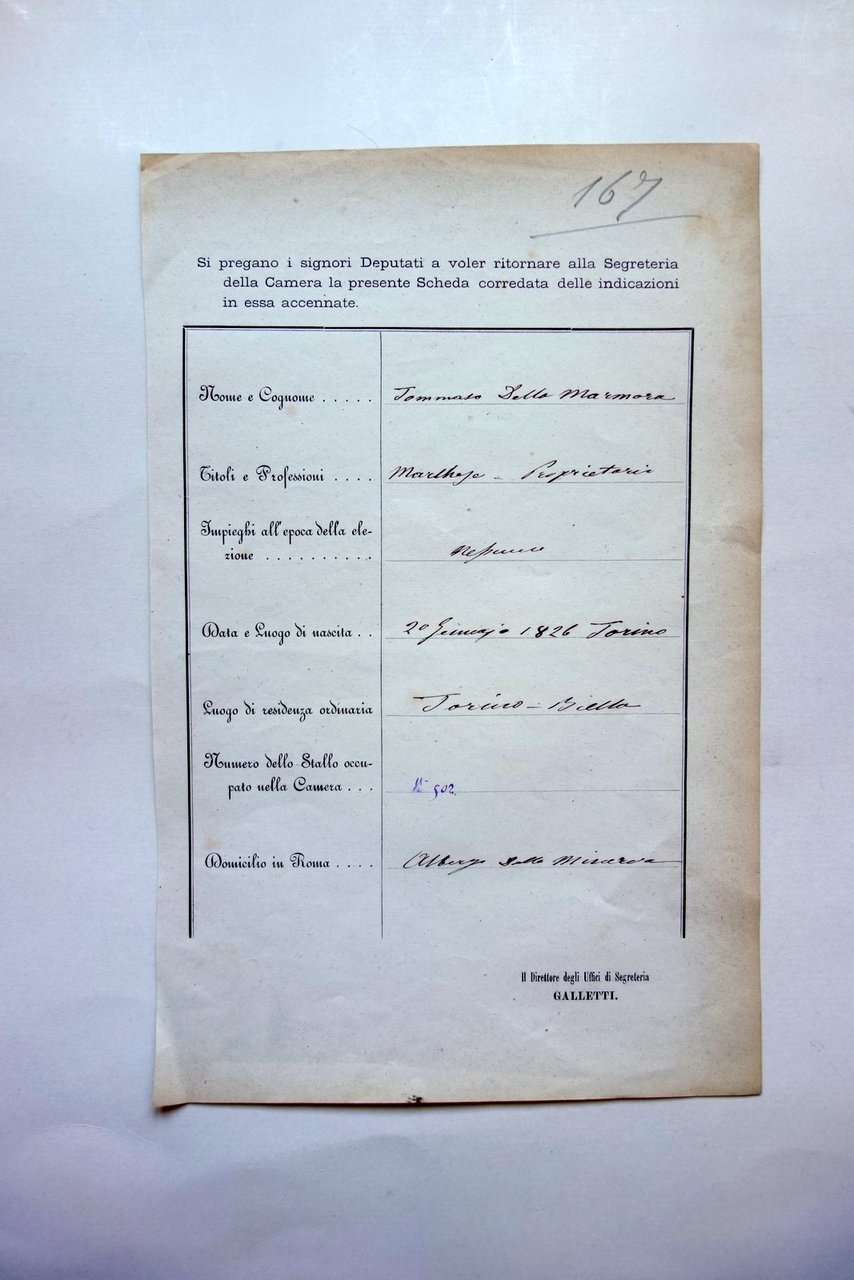 167
Si pregano i signori Deputati a voler ritornare alla Segreteria
della Camera la presente Scheda corredata delle indicazioni
in essa accennate.
Nome e Cognome . . . . . Tommaso Della Marmora
Titoli e Professioni . . . . Marchese - Proprietario
Impieghi all'epoca della ele-
zione . . . . . . . . . . Nessuno
Data e Luogo di nascita . . 1826 Torino
Luogo di residenza ordinaria Torino - Biella
Numero dello Stallo occu-
pato nella Camera . . . N° 502.
Domicilio in Roma . . . . Albergo Della Minerva
Il Direttore degli Uffici di Segreteria
GALLETTI.